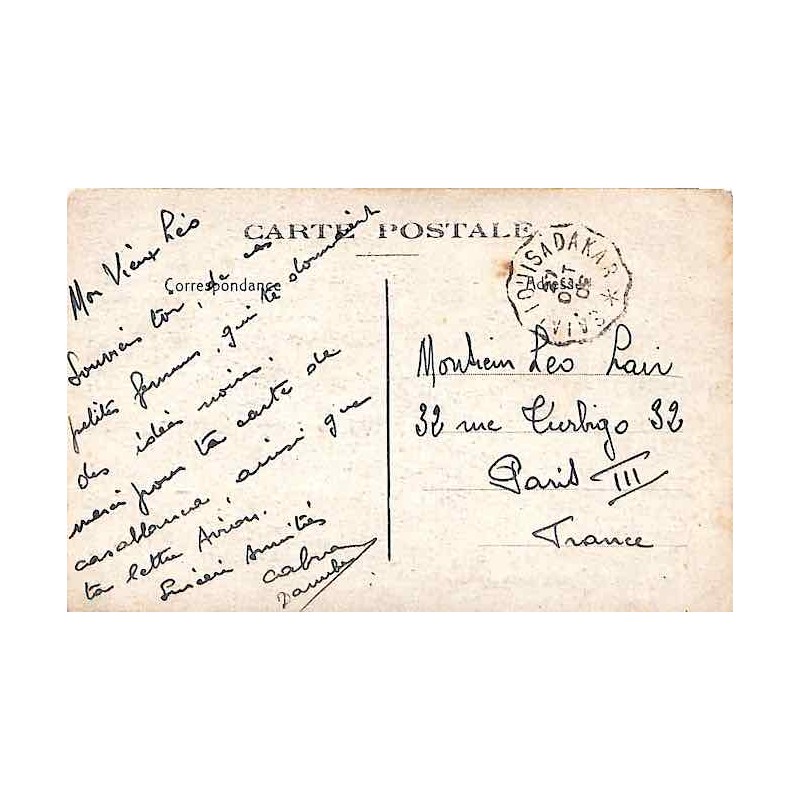 CARTE POSTALE
Correspondance
Adresse
Mon Vieux Léo
Souviens toi, de ces
petites femmes, qui te donnaient
des idées noires,
merci pour ta carte de
casablanca, ainsi que
ta lettre Avion.
Sincère Amitiés
LOUISADAKAR *
27
OCT
30
Monsieur Leo
32 rue Turbigo 32
Paris III
France